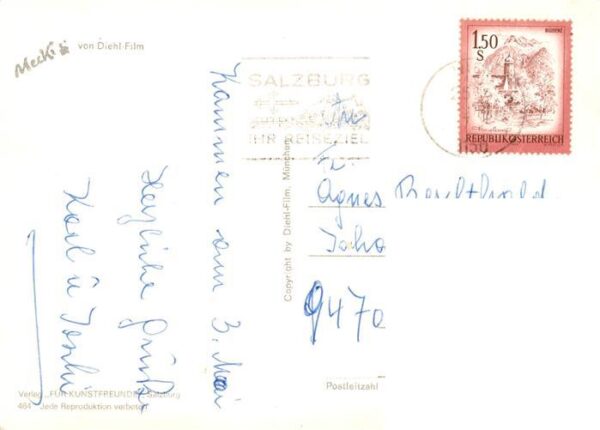 Mecki von Diehl-Film
SALZBURG
IHR REISEZIEL
1.50
S
BLUDENZ
REPUBLIK ÖSTERREICH
Kommen am 3. Mai
Herzliche Grüße
Karl u
Copyright by Diehl-Film, München
Agnes
9470
Postleitzahl
Verlag „FÜR KUNSTFREUNDE“ Salzburg
464 Jede Reproduktion verboten